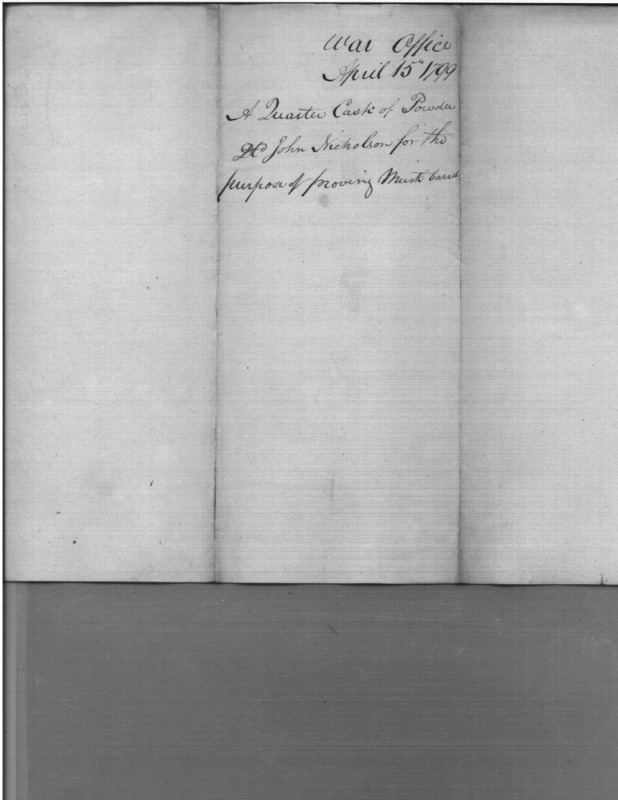 War Office
April 15th 1799
A Quarter Cask of Powder
John Nicholson for the
purpose of proving Musk barrel